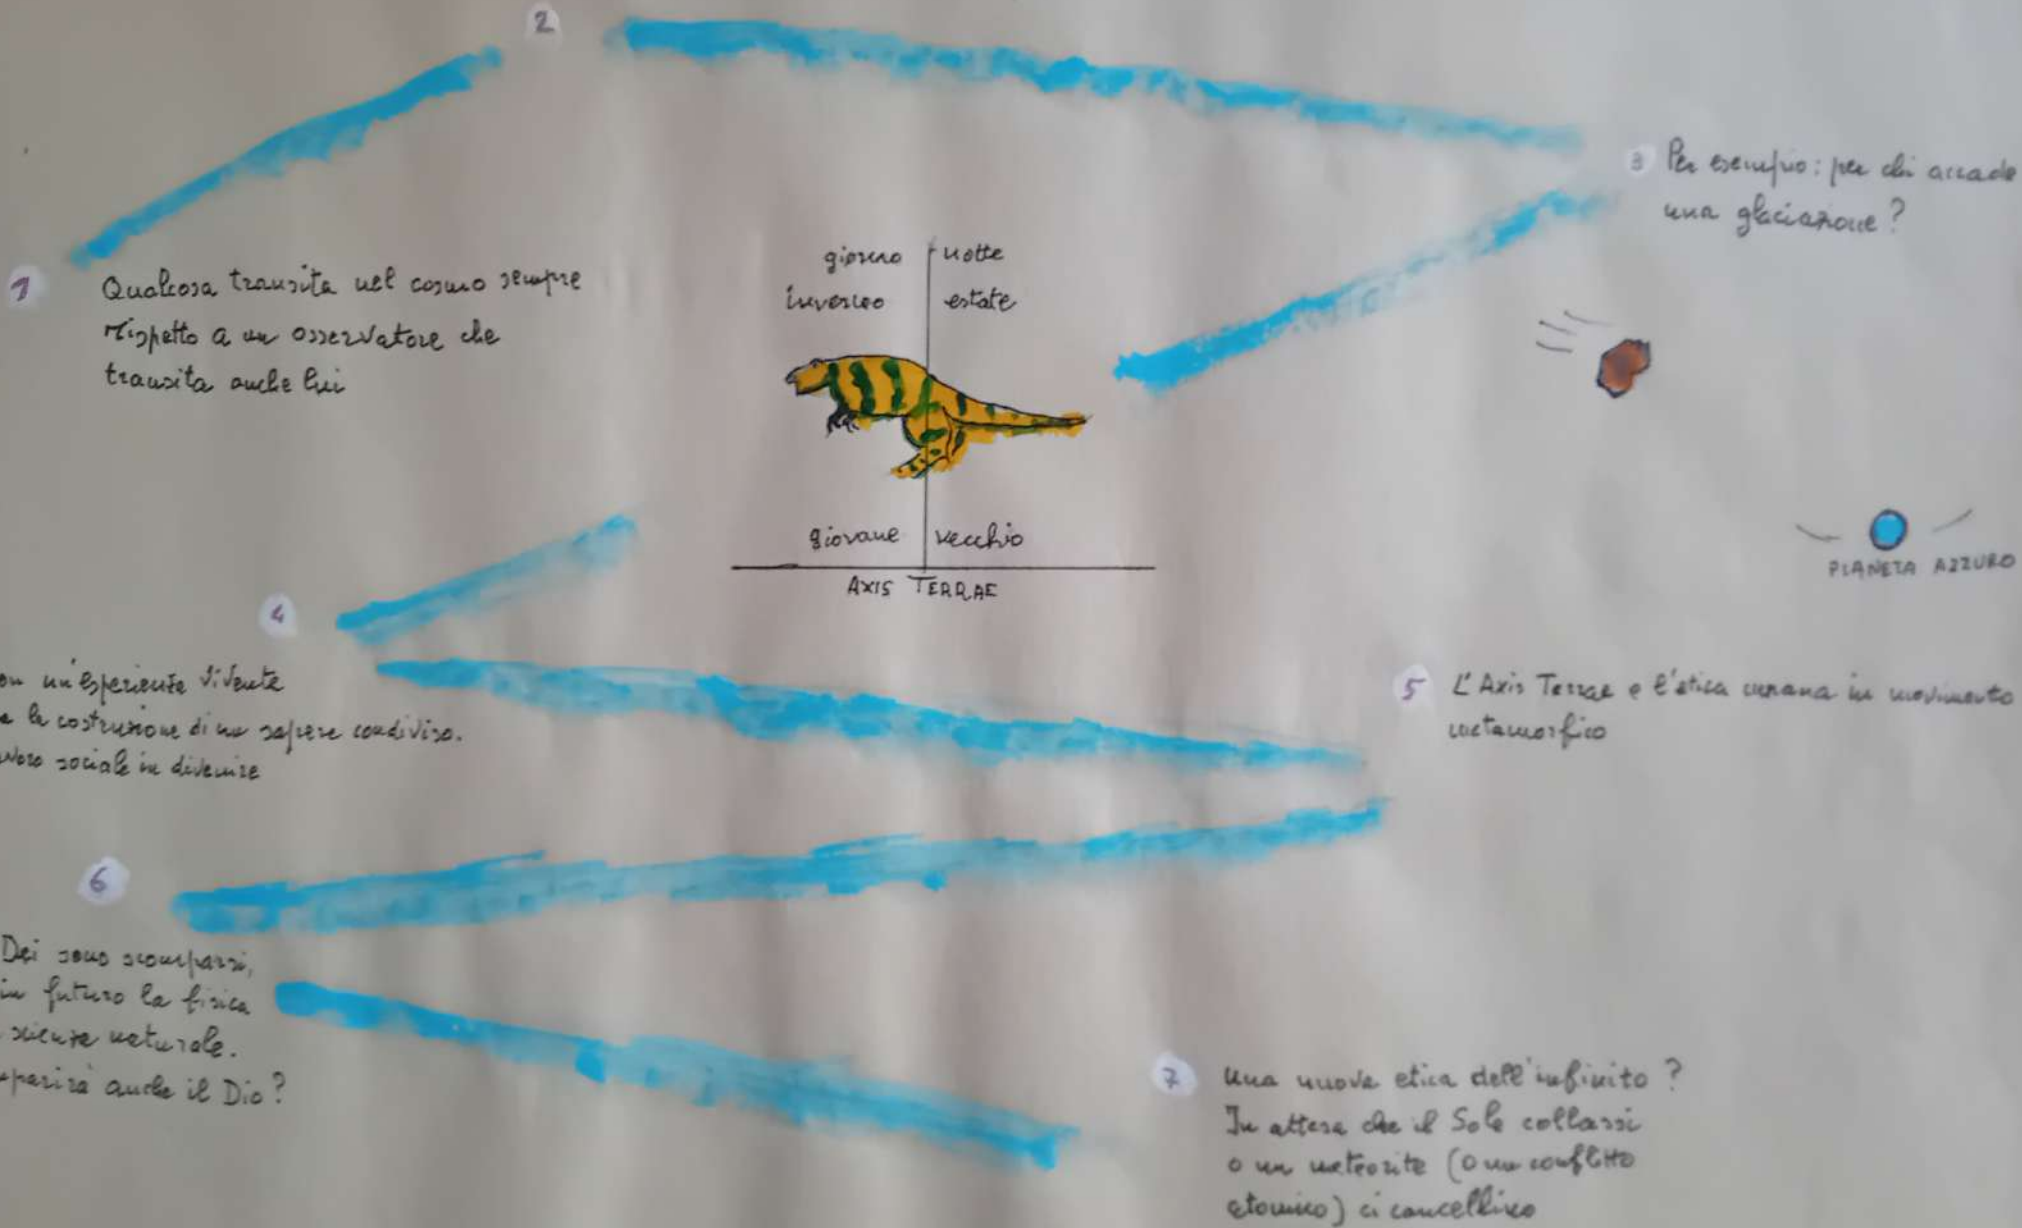 2
3 Per esempio: per chi accade
una glaciazione?
1 Qualcosa transita nel cosmo sempre
rispetto a un osservatore che
transita anche lui
giorno notte
inverno estate
giovane vecchio
AXIS TERRAE
PIANETA AZZURO
4
un'esperienza vivente
la costruzione di un sapere condiviso.
sociale in divenire
5 L'Axis Terrae e l'etica umana in movimento
metamorfico
6
Dei sono scomparsi,
in futuro la fisica
scienza naturale.
anche il Dio?
7 una nuova etica dell'infinito?
In attesa che il Sole collassi
o un meteorite (o un conflitto
atomico) ci cancellino